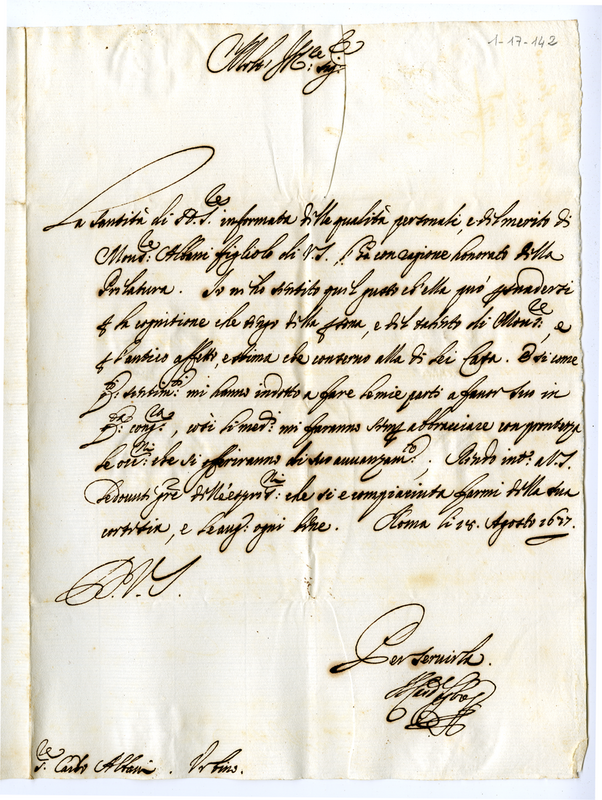 1-17-142
Molto Ill.re Sig.r
La Santità di N. S.re informata delle qualità personali, e del merito di
Mons.re Albani figliolo di V. S., l'ha con ragione honorato della
Prelatura. Io n'ho sentito quel gusto ch'ella può persuadersi
p la cognitione che tengo della, e del talento di Mons.re, e
p l'antico affetto, e stima che conservo alla di Lei Casa. E si come
sentim.ti mi hanno indotto a fare le mie parti a favor suo in
cong.ra, così li med.i mi faranno semp abbracciare con prontezza
le occ.ni che si offeriranno di suo avvanzam.to. Rendo int.o a V. S.
le dovute gre dell'espres.ni che si è compiaciuta farmi della sua
cortesia, e le aug.o ogni bene. Roma li 18. Agosto 1657.
D. V. S.
Per servirla.
S.r Carlo Albani. Urbino.